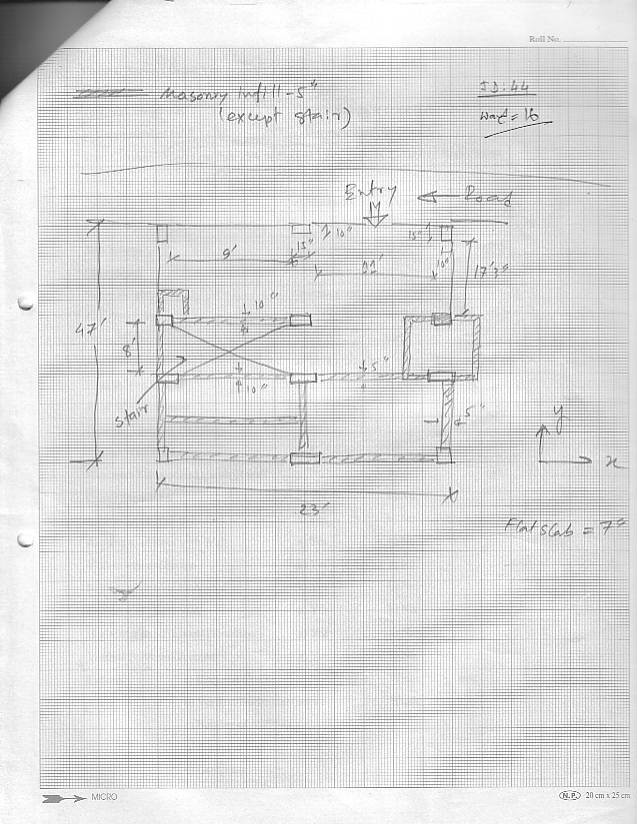 Roll No.
Masonry infill - 5"
(except stair)
ID: 44
Ward = 16
Entry
Road
10"
15"
9'
15"
11'
10"
17'3"
10"
47'
8'
5"
10"
stair
5"
y
x
23'
Flat slab = 7"
MICRO
N.P. 20 cm x 25 cm